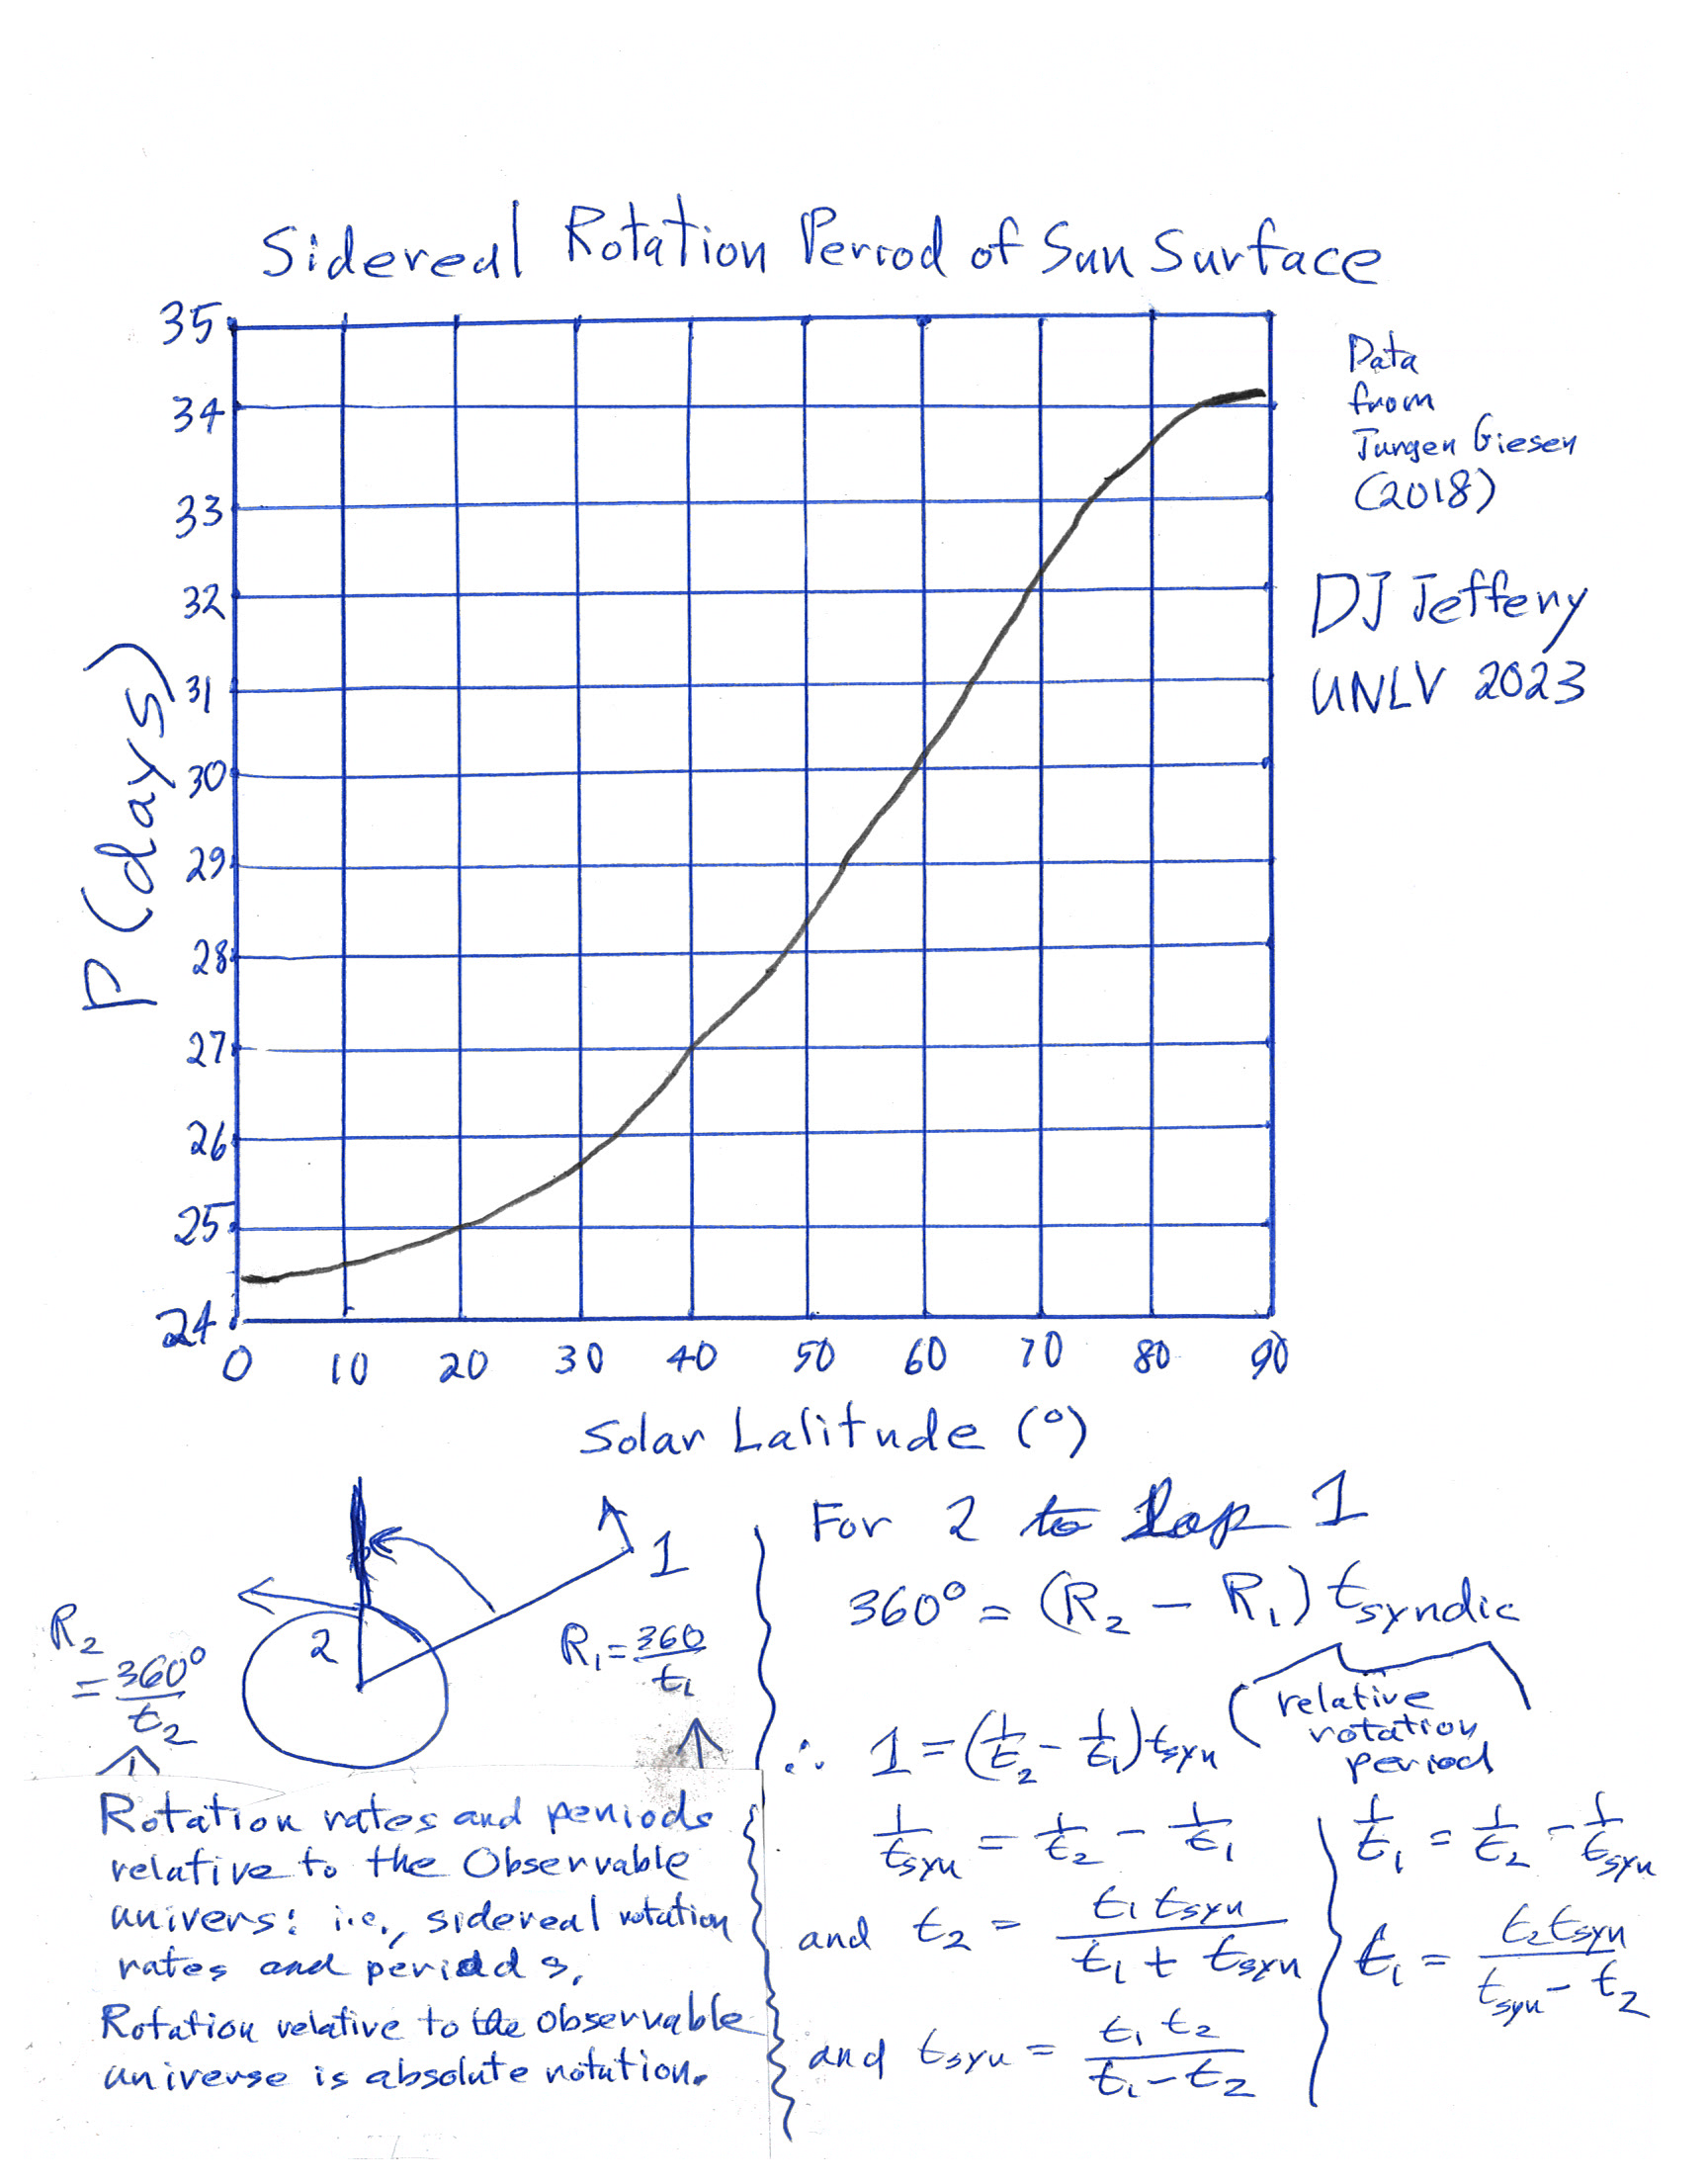 Sidereal Rotation Period of Sun Surface
35
34
33
32
31
30
29
28
27
26
25
24
P (days)
0 10 20 30 40 50 60 70 80 90
Solar Lalitude (°)
Data
from
Jurgen Giesen
(2018)
DJ Jeffery
UNLV 2023
1
2
R₂
= 360°/t₂
R₁ = 360/t₁
Rotation rates and periods
relative to the Observable
univers: i.e., sidereal rotation
rates and periods.
Rotation relative to the observable
universe is absolute rotation.
For 2 to lap 1
360° = (R₂ − R₁) tsyndic
relative
rotation
period
∴ 1 = (1/t₂ − 1/t₁) tsyn
1/tsyn = 1/t₂ − 1/t₁
and t₂ = t₁ tsyn / t₁ + tsyn
and tsyn = t₁ t₂ / t₁ − t₂
1/t₁ = 1/t₂ − 1/tsyn
t₁ = t₂ tsyn / tsyn − t₂